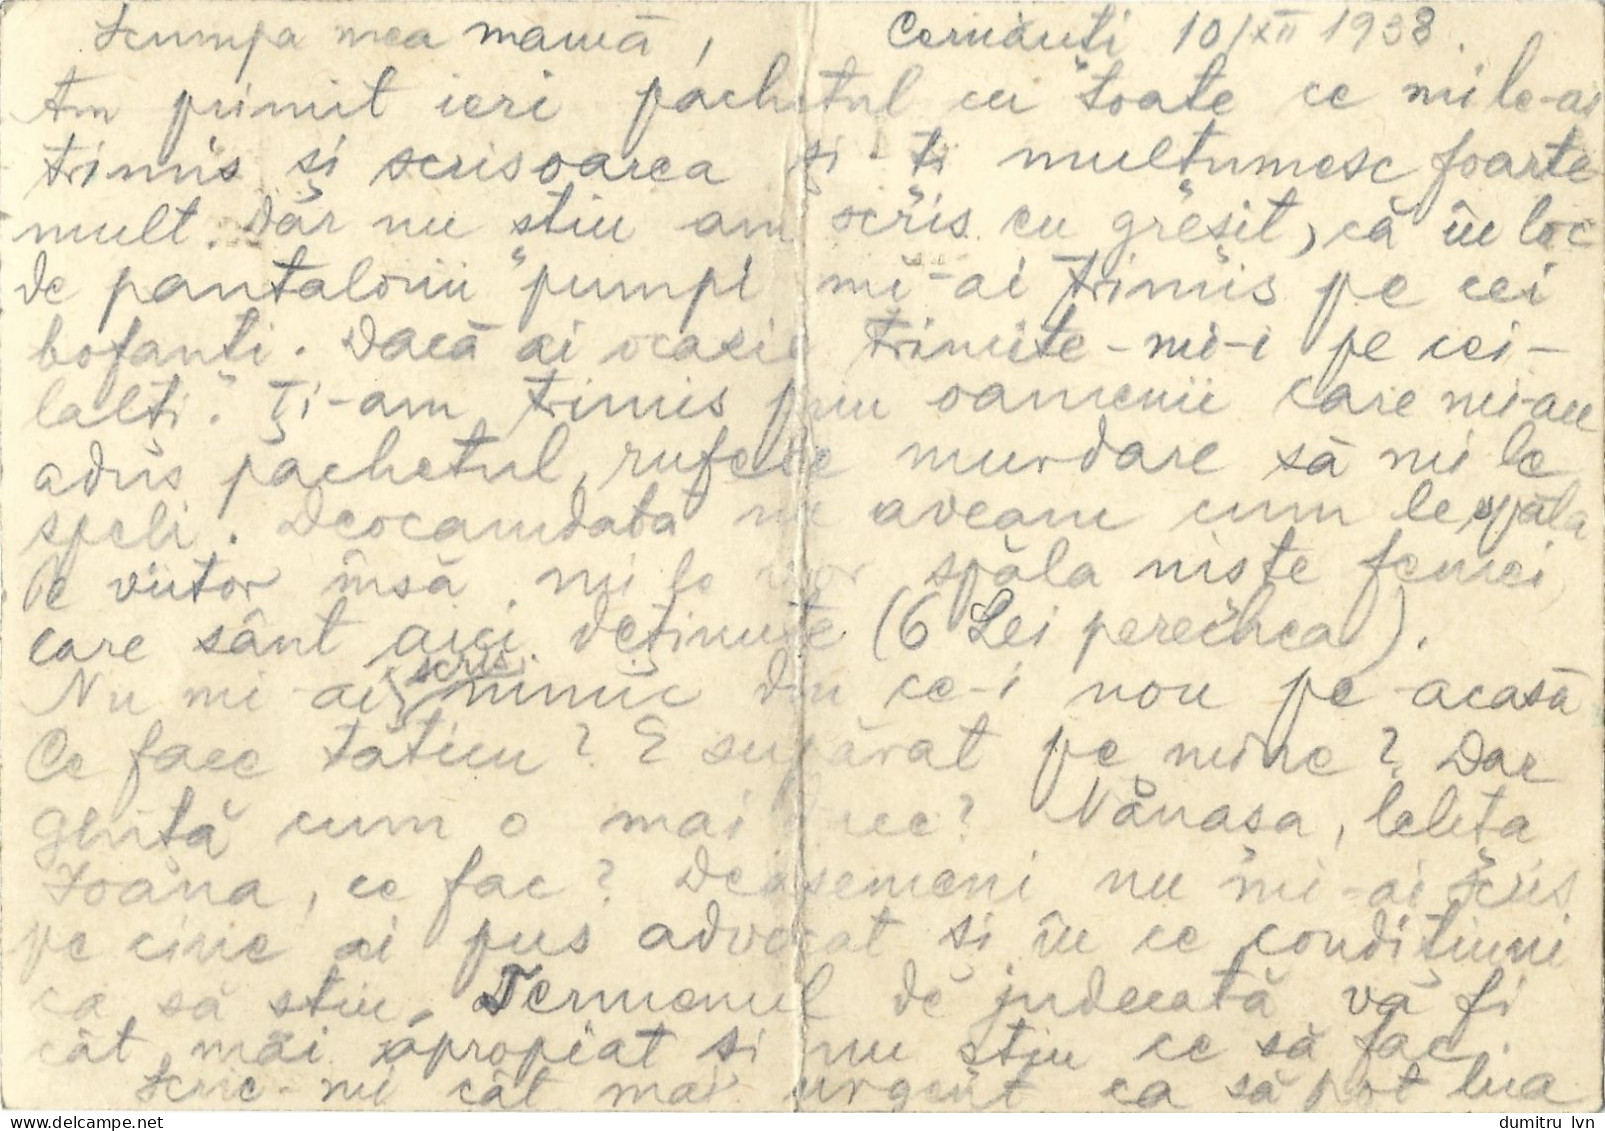 Scumpa mea mamă, Cernăuți 10/XII 1938.
Am primit ieri pachetul cu toate ce mi le-ai
trimis și scrisoarea și-ți mulțumesc foarte
mult. Dar nu știu am scris eu greșit, că în loc
de pantalonii "pumpi" mi-ai trimis pe cei
bofanți. Dacă ai ocazie trimite-mi-i pe cei-
lalți. Ți-am trimis prin oamenii care mi-au
adus pachetul, rufele murdare să mi le
speli. Deocamdata nu aveam cum le spăla
Pe viitor însă mi le vor spăla niște femei
care sânt aici deținute (6 Lei perechea).
Nu mi-ai scris nimic din ce-i nou pe-acasă
Ce face tăticu? E supărat pe mine? Dar
Ghiță cum o mai duce? Nănașa, lelița
Ioana, ce fac? Deasemeni nu mi-ai scris
pe cine ai pus advocat și în ce condițiuni
ca să știu. Termenul de judecată va fi
cât mai apropiat și nu știu ce să fac.
Scrie-mi cât mai urgent ca să pot lua
dumitru_lvn